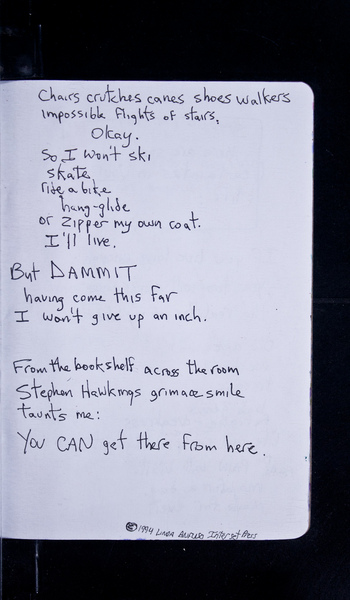 Chairs crutches canes shoes walkers
impossible flights of stairs.
Okay.
So I won't ski
skate
ride a bike
hang-glide
or zipper my own coat.
I'll live.
But DAMMIT
having come this far
I won't give up an inch.
From the bookshelf across the room
Stephen Hawkings grimace smile
taunts me:
YOU CAN get there from here.
© 1994 LINDA Interset Press